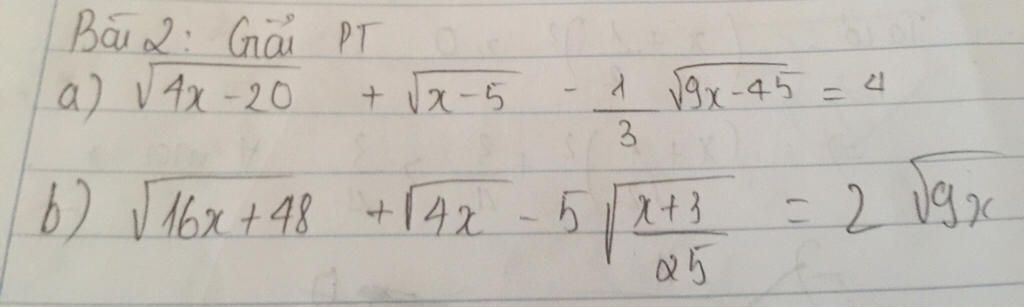 Bài 2: Giải PT
a) √(4x-20) + √(x-5) - 1/3 √(9x-45) = 4
b) √(16x+48) + √(4x) - 5√((x+3)/25) = 2√(9x)